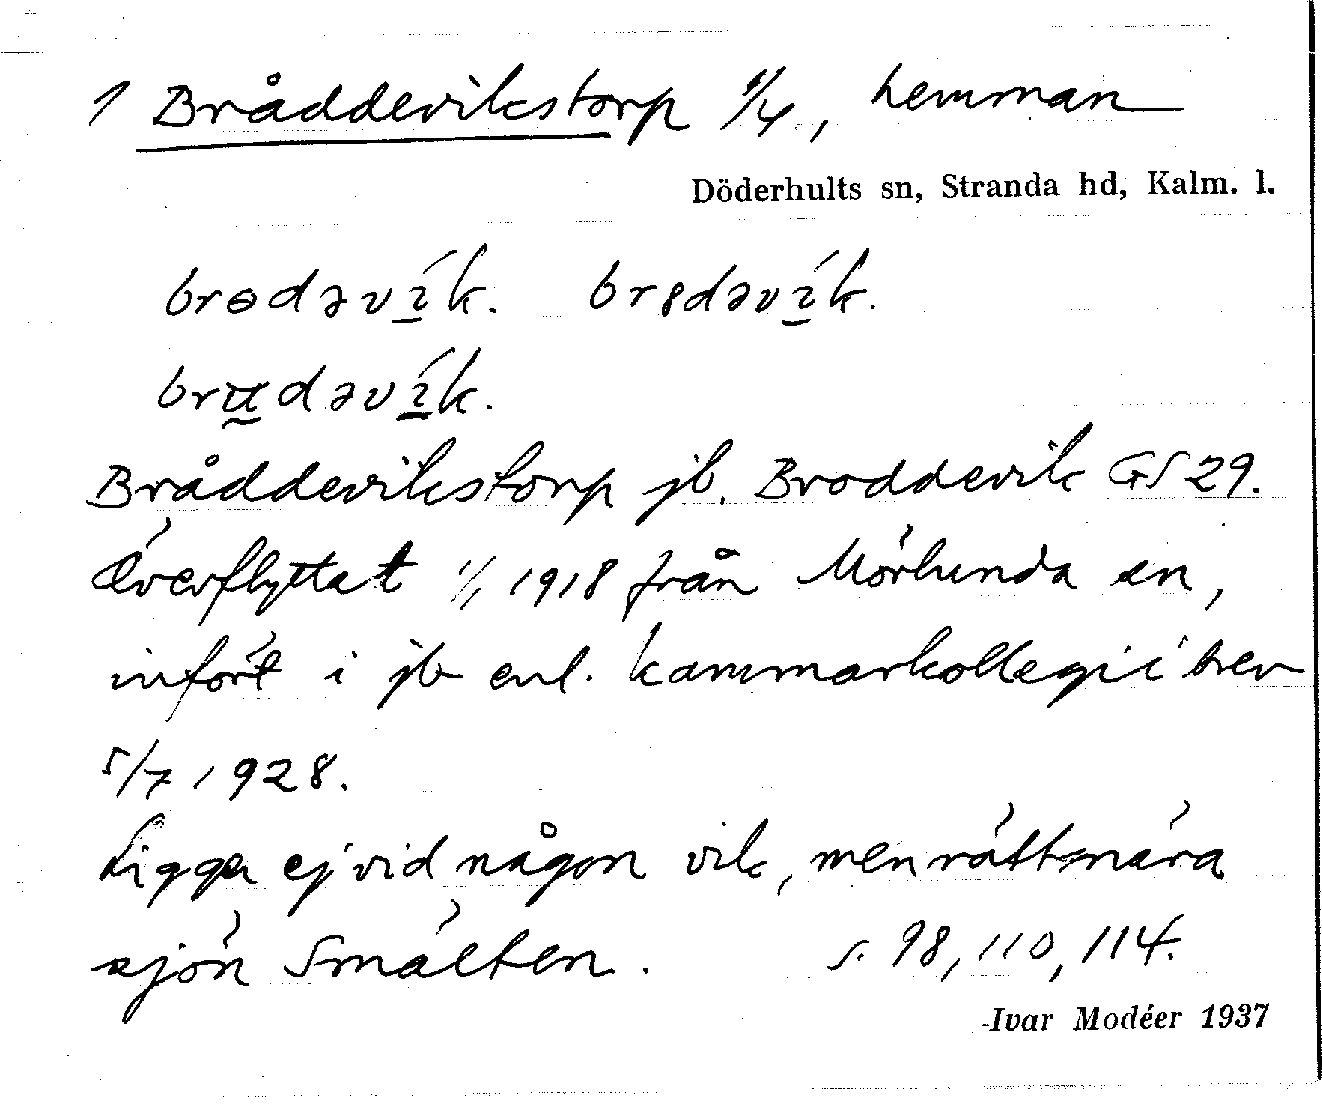 1 Bråddevikstorp 1/4, hemman
Döderhults sn, Stranda hd, Kalm. l.
brɵdəvík. br8dəvík.
brʉdəvík.
Bråddevikstorp jb. Broddevik GS 29.
Överflyttat 1/1 1918 från Mörlunda sn,
infört i jb enl. kammarkollegii brev
5/7 1928.
Ligger ej vid någon vik, men rätt nära
sjön Smälten. s. 98, 110, 114.
Ivar Modéer 1937